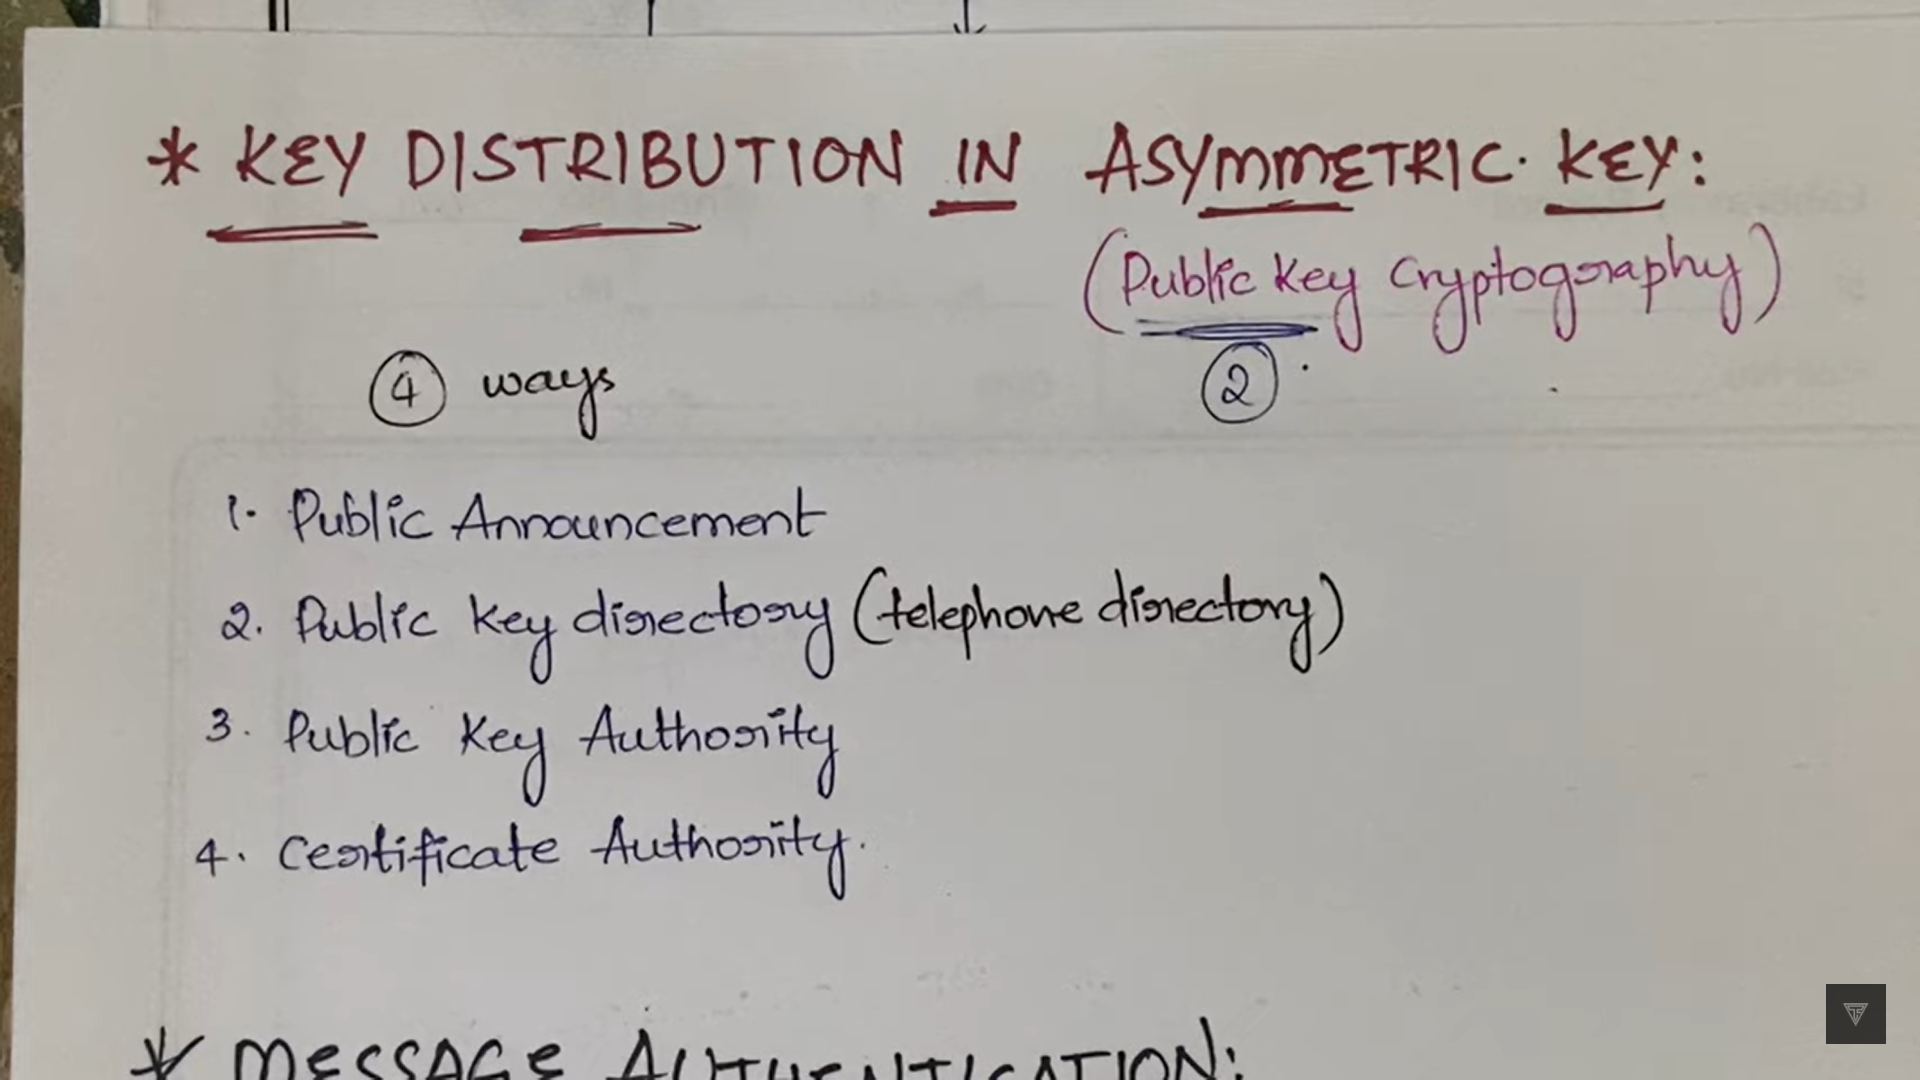 * KEY DISTRIBUTION IN ASYMMETRIC KEY:
(Public Key Cryptography)
4 ways
2
1. Public Announcement
2. Public Key directory (telephone directory)
3. Public Key Authority
4. Certificate Authority.
* MESSAGE AUTHENTICATION: